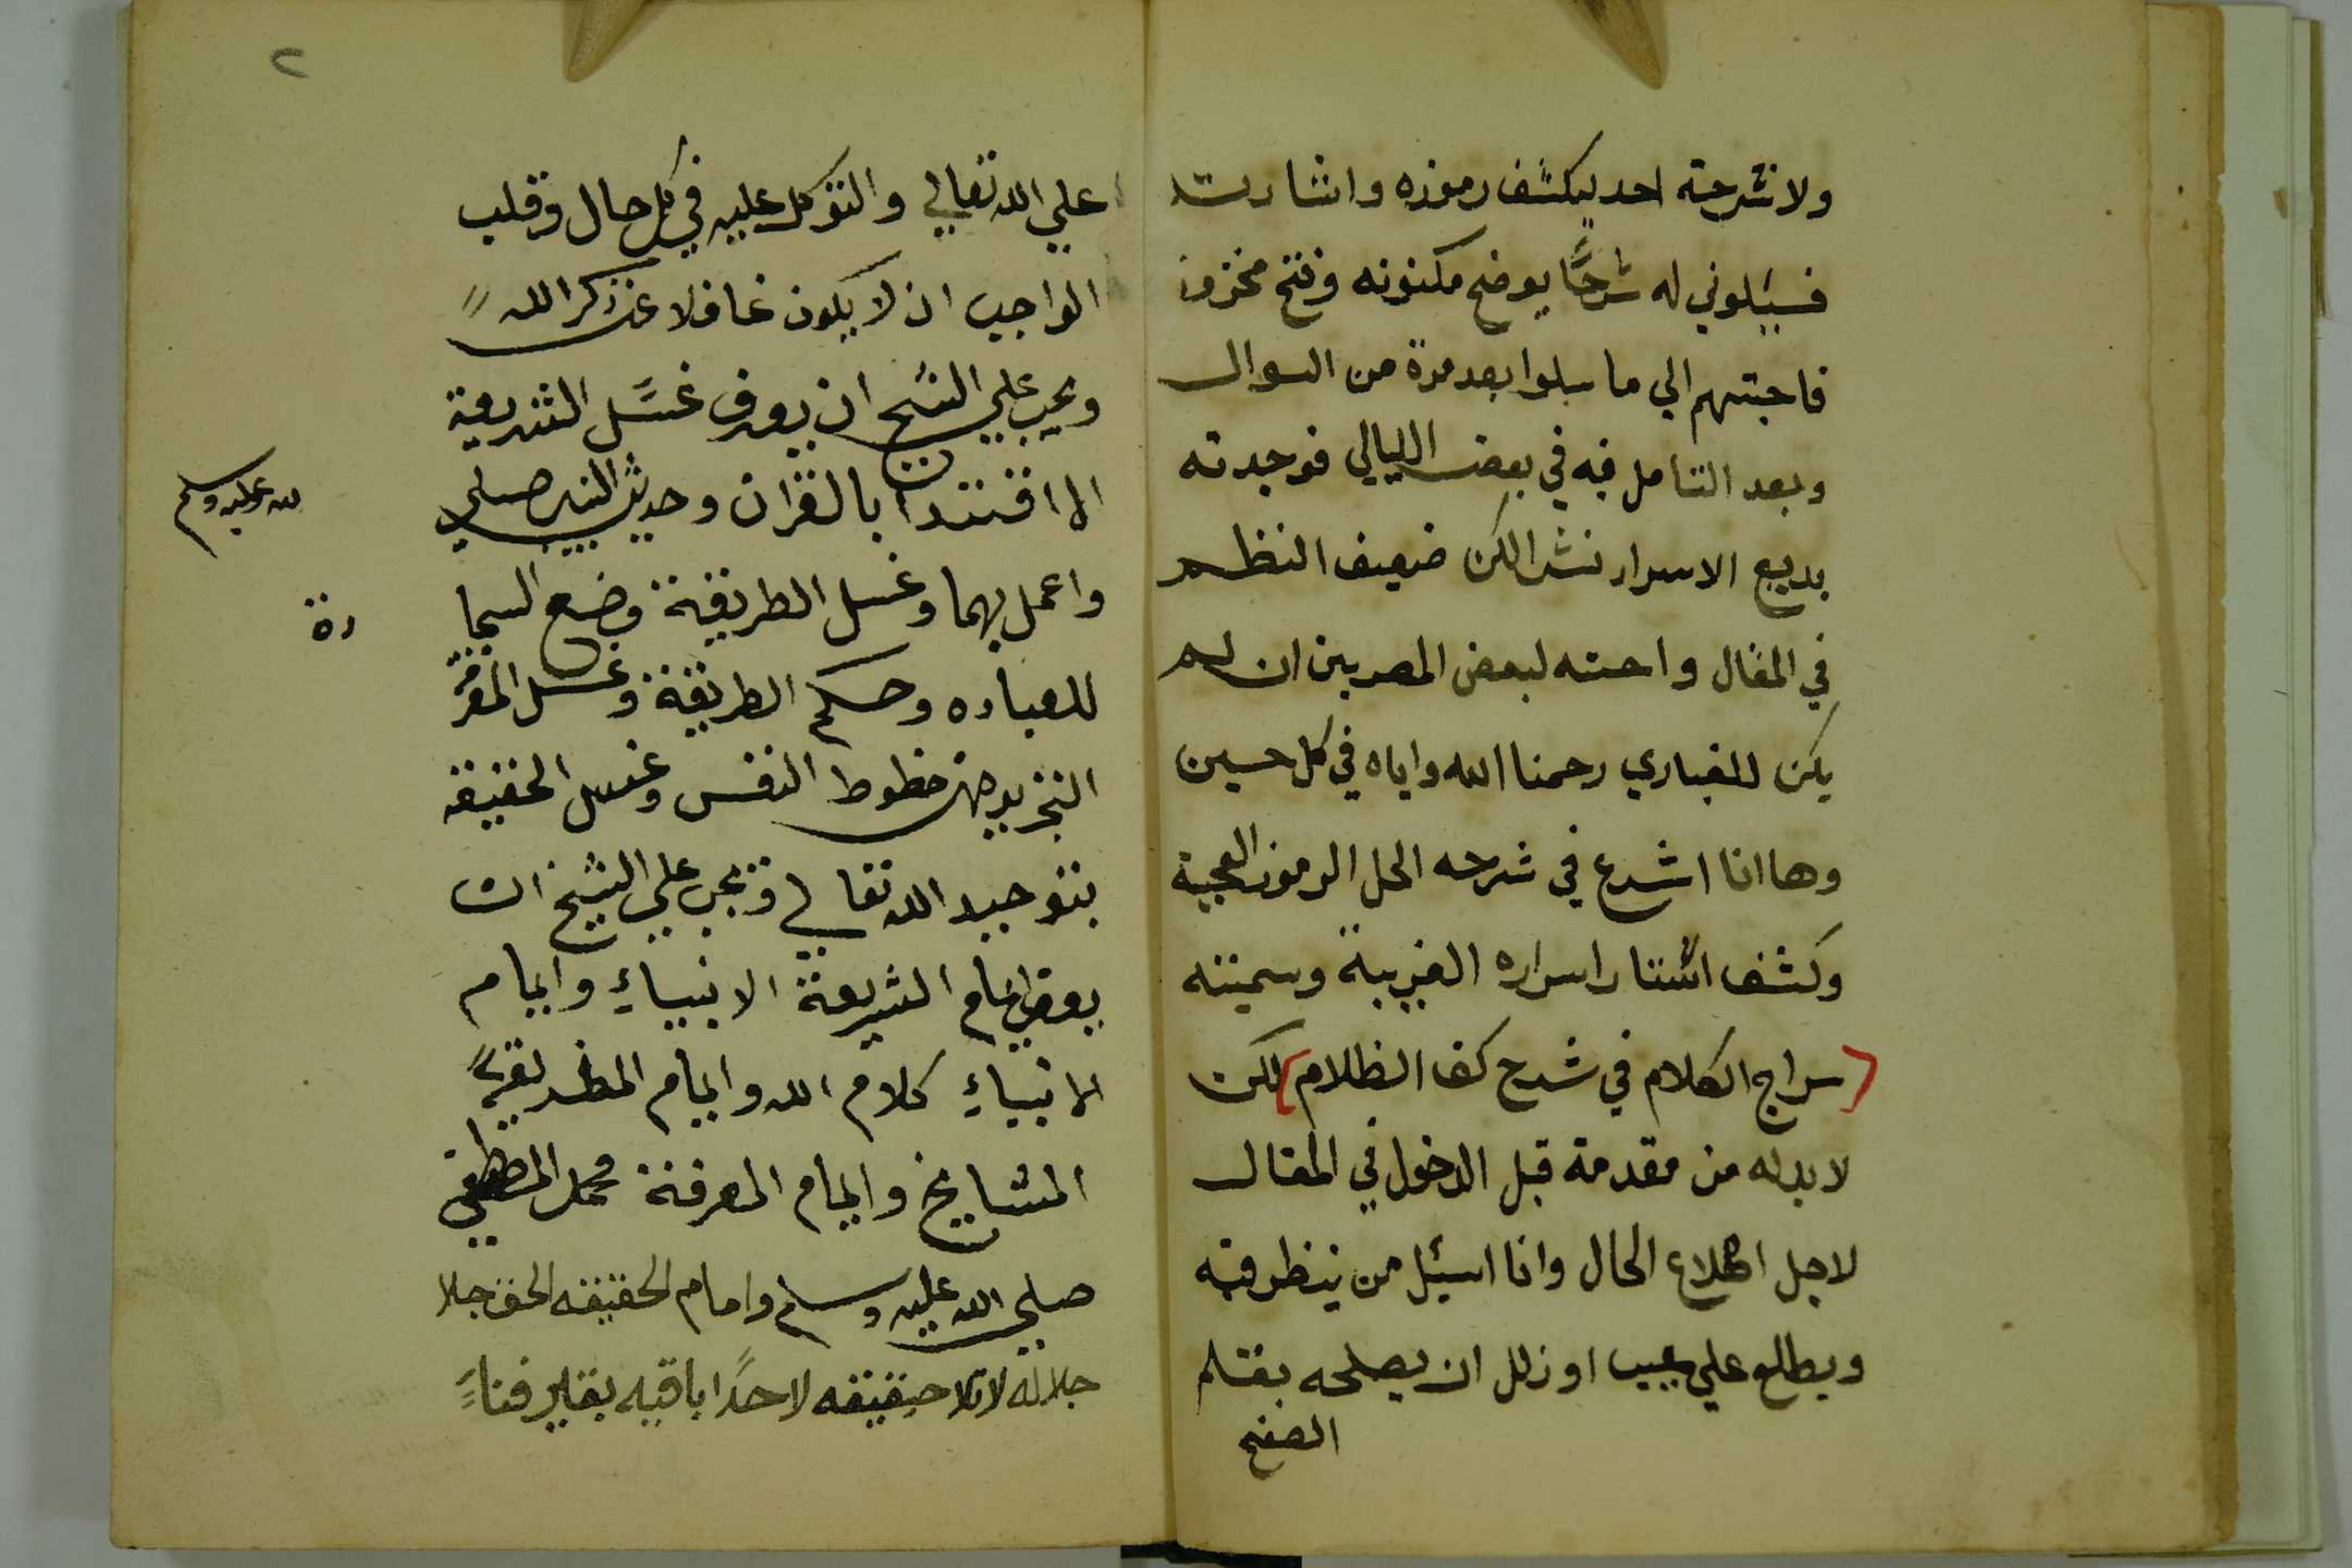 ولا شرحته احد ليكشف رموزه واشارته
فسيلوني له شرحًا يوضح مكنونه وفتح مخزونه
فاجبتهم الي ما سيلوا بعد مرة من السوال
وبعد التامل فيه في بعض الليالي فوجدته
بديع الاسرار نشر الكن ضعيف النظم
في المقال واحسنه لبعض المصريين ان لم
يكن للغباري رحمنا الله واياه في كل حسين
وها انا اشرع في شرحه الحل الرموز العجيبة
وكشف استار اسراره الغريبة وسميته
سراج الكلام في شرح كف الظلام لكن
لا بد له من مقدمة قبل الدخول في المقال
لاجل اطلاع الحال وانا اسئل من ينظر فيه
ويطلع علي عيب او زلل ان يصلحه بقلم
الصفح
٢
علي الله تعالي والتوكل عليه في كل حال وقلب
الواجب ان لا يكون غافلا عن ذكر الله
ويجب علي الشيخ ان يعرف غسل الشريعة
الاقتدا بالقران وحديث النبي صلي
لله عليه وسلم
واعمل بهما وغسل الطريقة وضع السجا
دة
للعباده وحكم الطريقة وغسل المعرفة
التجريد من حظوط النفس وغسل الحقيقه
بتوحيد الله تعالي ويجب علي الشيخ ان
يعرف ايمام الشريعة الانبياءِ وايمام
الانبياءِ كلام الله وايمام الطريقة
المشايخ وايمام المعرفة محمد المصطفي
صلي الله عليه وسلم وامام الحقيقه الحق جلا
جلاله لا تلا حقيقه لاحدًا باقيه بغير فناءً